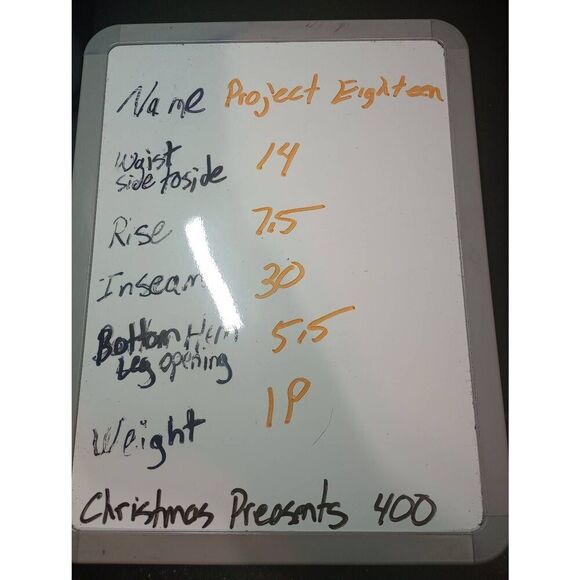 Name Project Eighteen
Waist side to side 14
Rise 7.5
Inseam 30
Bottom Hem Leg opening 5.5
Weight 1P
Christmas Preasmts 400